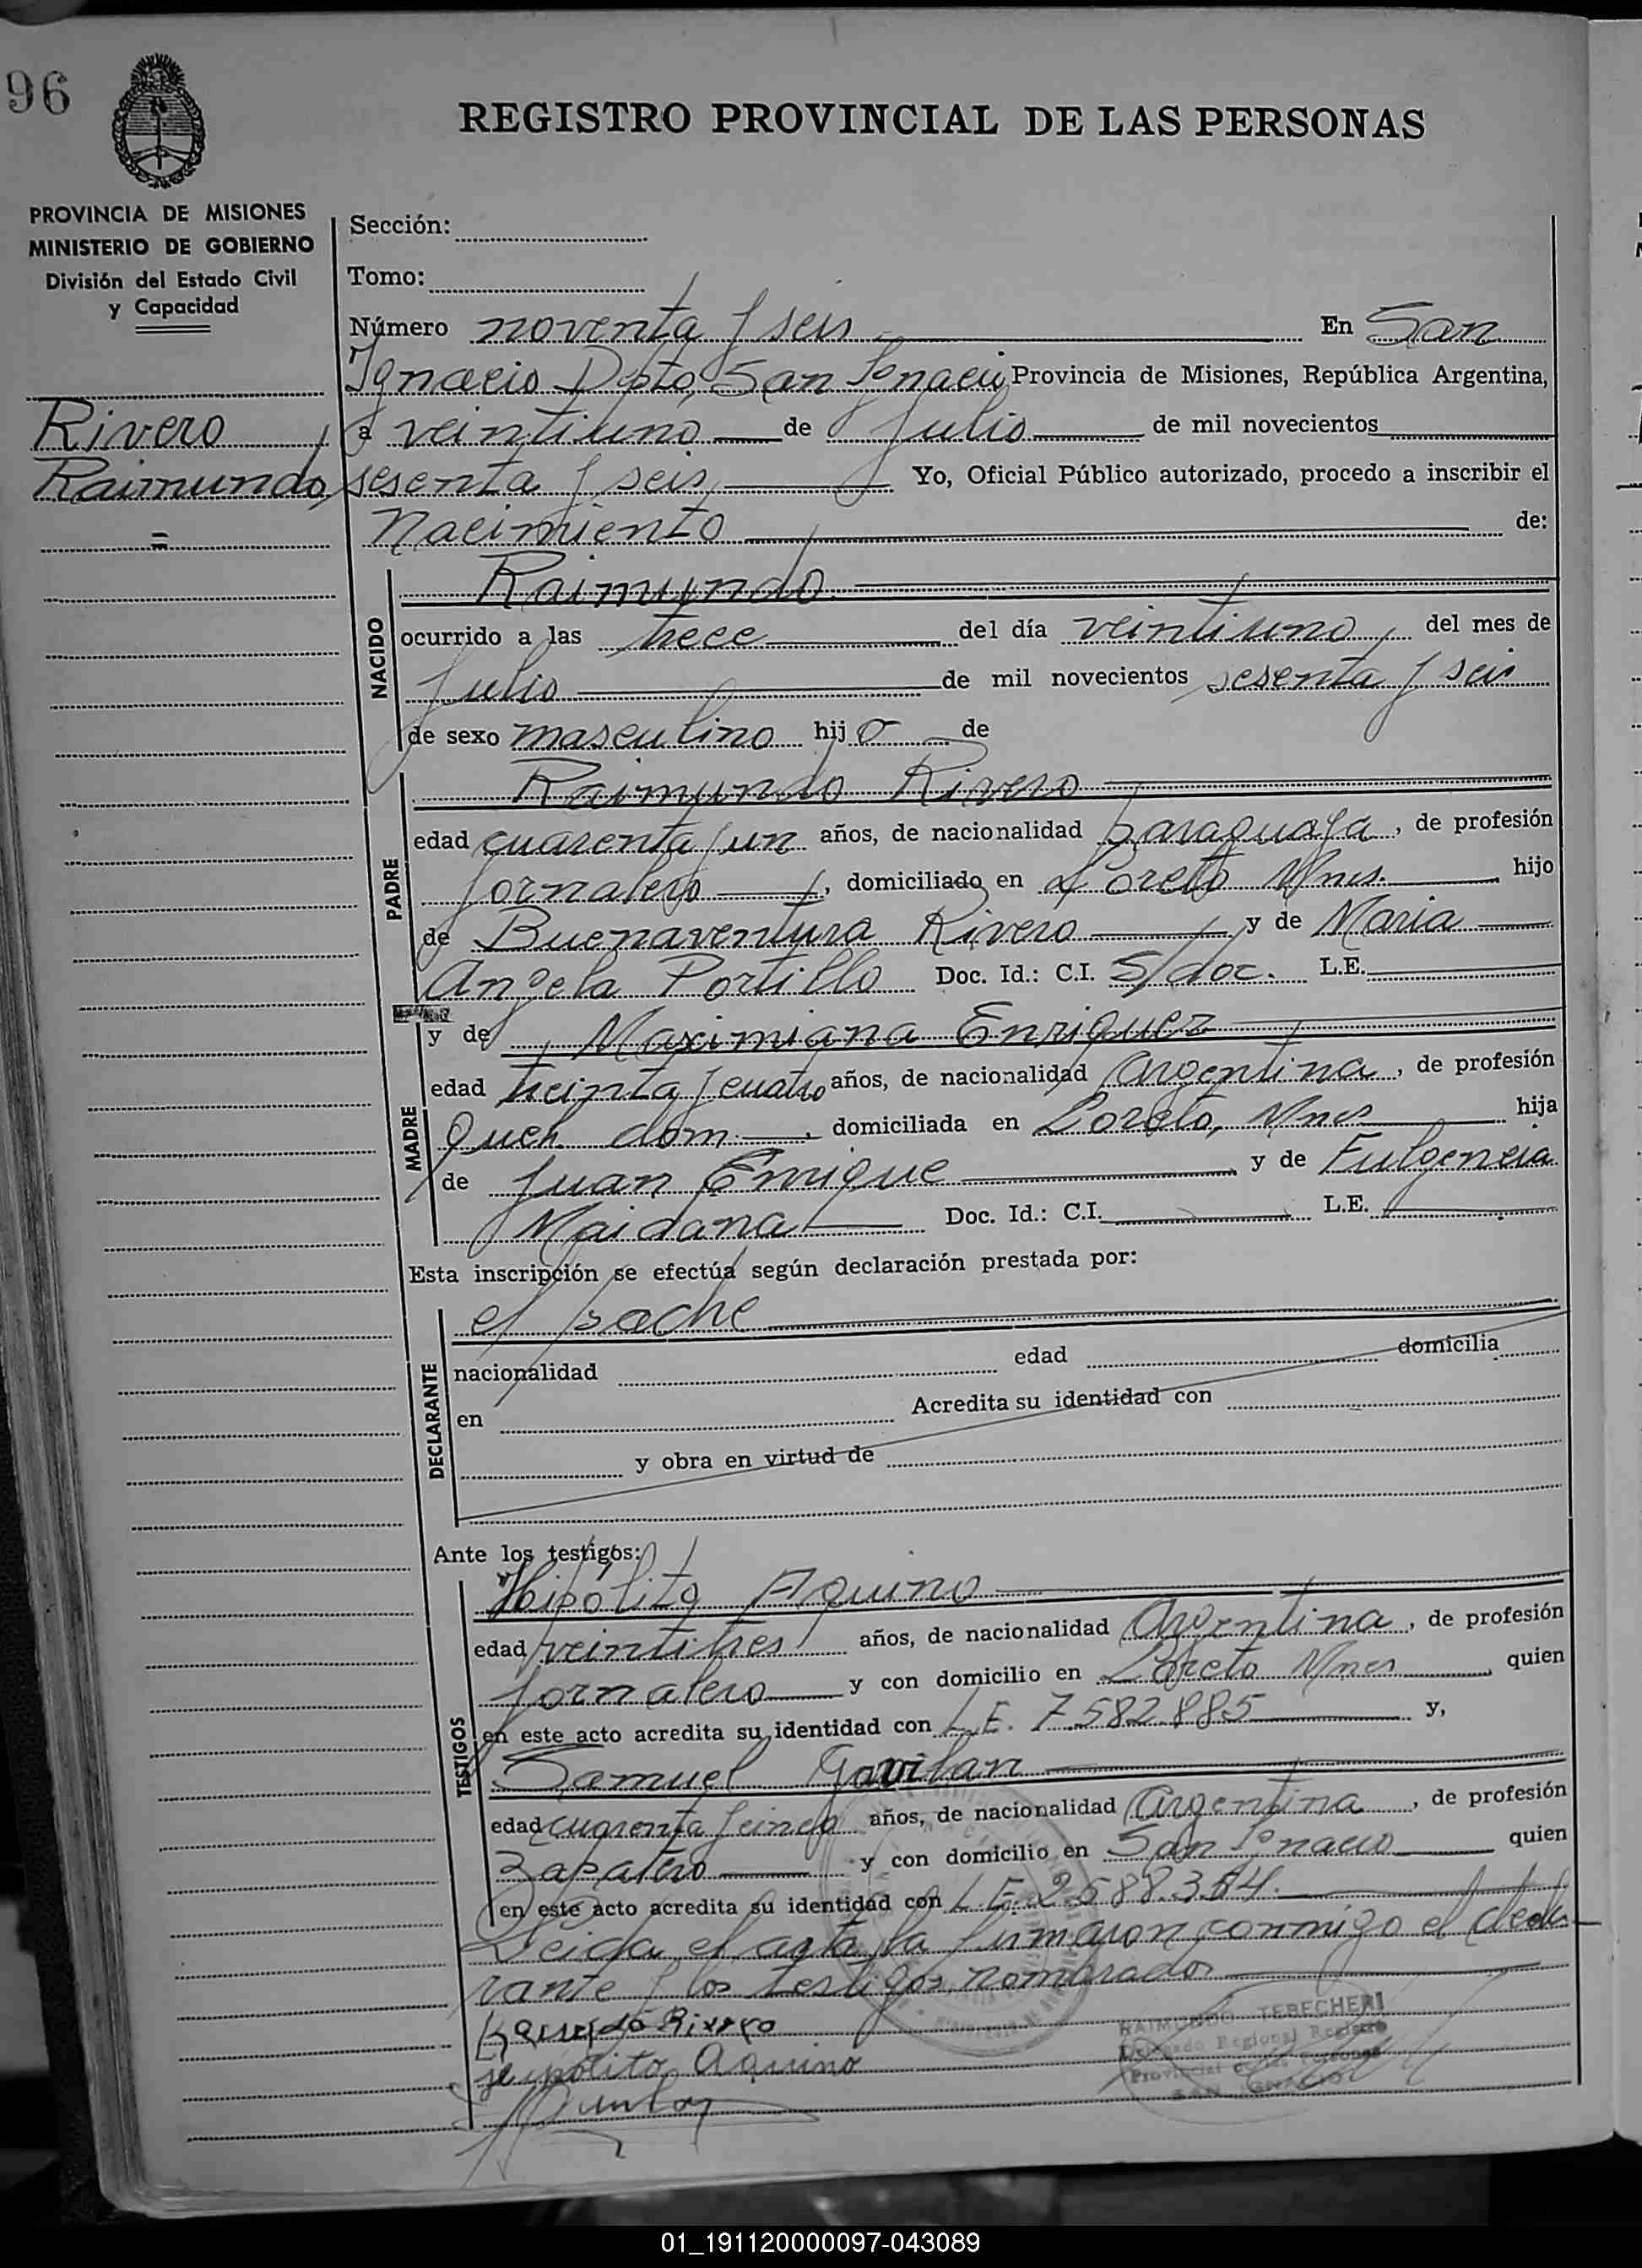 96
REGISTRO PROVINCIAL DE LAS PERSONAS
PROVINCIA DE MISIONES
MINISTERIO DE GOBIERNO
División del Estado Civil
y Capacidad
Rivero
Raimundo
=
Sección:
Tomo:
Número noventa y seis En San
Ignacio Dpto, San Ignacio Provincia de Misiones, República Argentina,
a veintiuno de Julio de mil novecientos
sesenta y seis, Yo, Oficial Público autorizado, procedo a inscribir el
Nacimiento de:
NACIDO
Raimundo
ocurrido a las trece del día veintiuno, del mes de
Julio de mil novecientos sesenta y seis
de sexo masculino hijo de
PADRE
Raimundo Rivero
edad cuarenta y un años, de nacionalidad paraguaya, de profesión
Jornalero, domiciliado en Loreto Mnes. hijo
de Buenaventura Rivero y de Maria
Angela Portillo Doc. Id.: C.I. S/doc. L.E.
MADRE
y de Maximiana Enriquez
edad treinta y cuatro años, de nacionalidad Argentina, de profesión
Queh. dom., domiciliada en Loreto, Mnes hija
de Juan Enrique y de Fulgencia
Maidana Doc. Id.: C.I. L.E.
Esta inscripción se efectúa según declaración prestada por:
DECLARANTE
el padre
nacionalidad edad domicilia
en Acredita su identidad con
y obra en virtud de
Ante los testigos:
TESTIGOS
Hipólito Aquino
edad veintitres años, de nacionalidad Argentina, de profesión
Jornalero y con domicilio en Loreto Mnes quien
en este acto acredita su identidad con L.E. 7582885 y,
Samuel Gavilan
edad cuarenta y cinco años, de nacionalidad Argentina, de profesión
Zapatero y con domicilio en San Ignacio quien
en este acto acredita su identidad con L.E. 2588.364.
Leida el acta, la firmaron conmigo el decla-
rante y los testigos nombrados
Rivero
Aquino
RAIMUNDO TERECHERI
Delegado Regional Registro
Provincial de las Personas
SAN IGNACIO
01_191120000097-043089